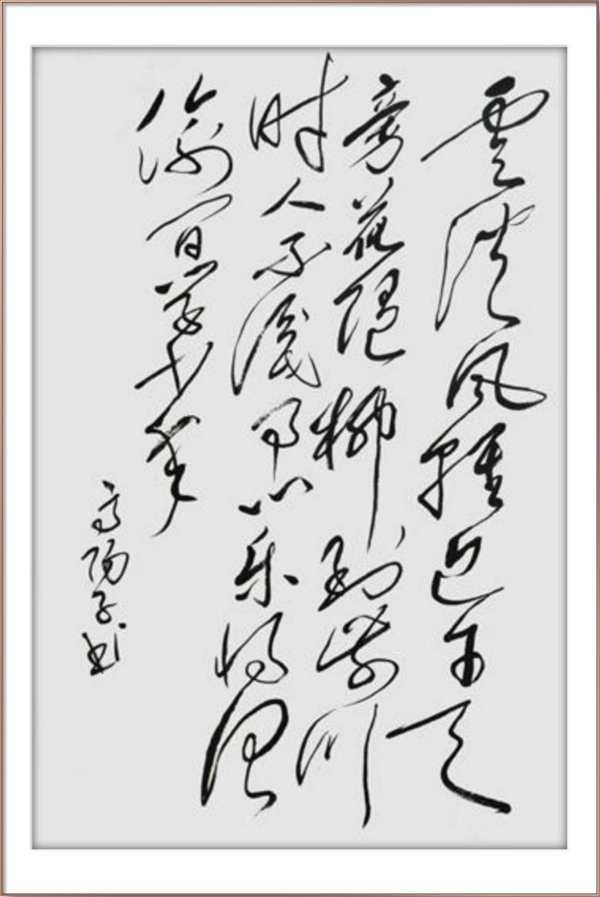 雲淡风轻近午天
旁花随柳到前川
时人不識予心乐将谓
偷闲学少年
高阳子书